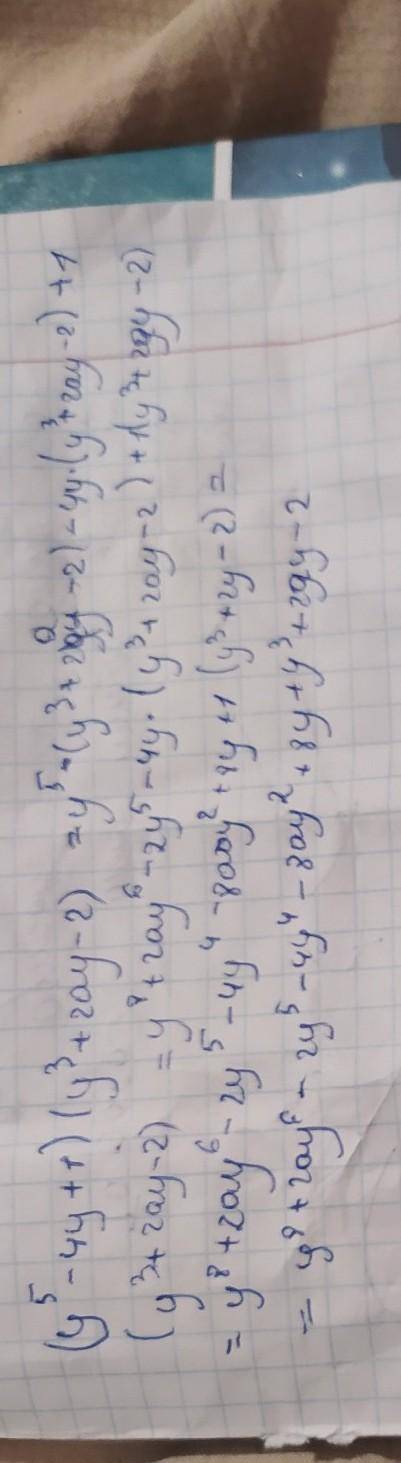 (y⁵ - 4y + 1)(y³ + 2ay - 2) = y⁵ · (y³ + 2ay - 2) - 4y · (y³ + 2ay - 2) + 1
(y³ + 2ay - 2) = y⁸ + 2ay⁶ - 2y⁵ - 4y · (y³ + 2ay - 2) + 1(y³ + 2ay - 2)
= y⁸ + 2ay⁶ - 2y⁵ - 4y⁴ - 8ay² + 8y + 1 (y³ + 2y - 2) =
= y⁸ + 2ay⁶ - 2y⁵ - 4y⁴ - 8ay² + 8y + y³ + 2ay - 2